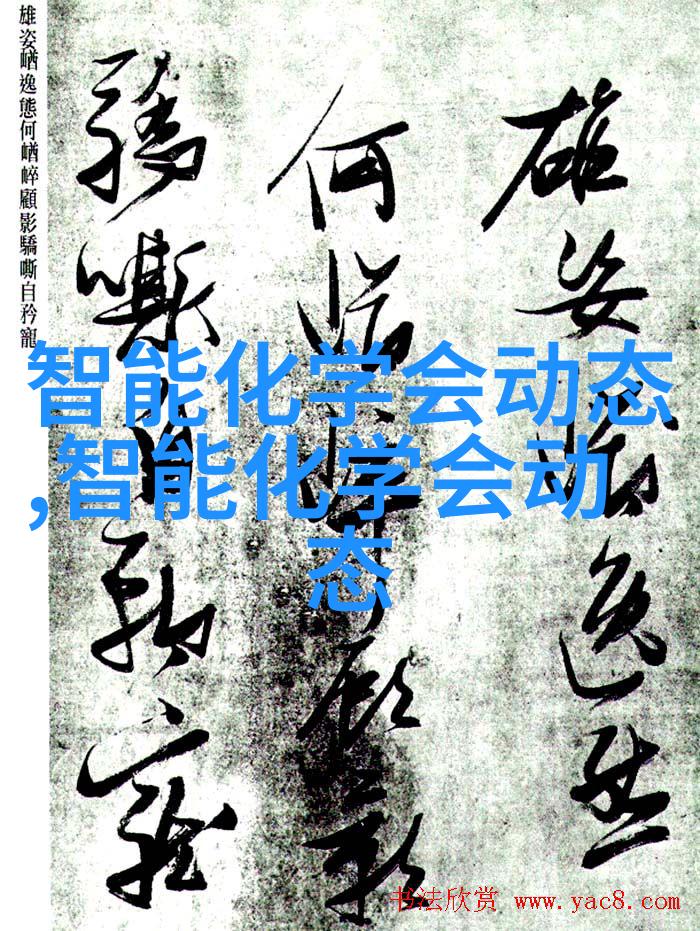 雄姿逸態
何崷崪顧影
驕嘶自矜寵
雄姿崷逸態何崷崪顧影驕嘶自矜寵
智能化学会动态
,智能化学会动
态
书法欣赏 www.yac8.com